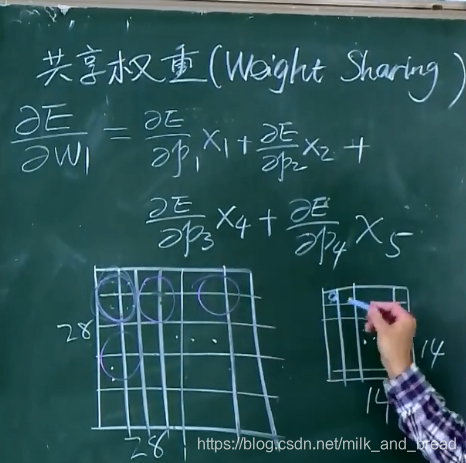 共享权重(Weight Sharing)
∂E/∂W₁ = ∂E/∂p₁ X₁ + ∂E/∂p₂ X₂ +
∂E/∂p₃ X₄ + ∂E/∂p₄ X₅
28
28
14
14
https://blog.csdn.net/milk_and_bread